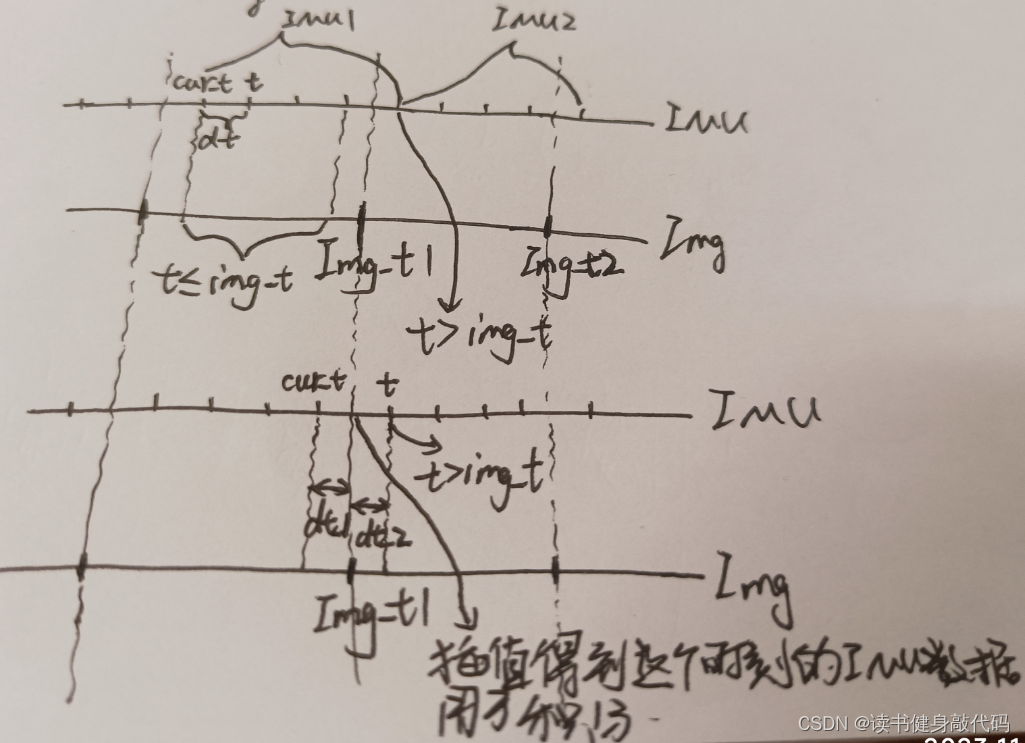 Imu1 Imu2
cur_t t
IMU
dt
Img
t≤img_t Img_t1 Img_t2
t>img_t
cur_t t
IMU
t>img_t
dt1 dt2
Img
Img_t1
插值得到这个时刻的IMU数据
用于积分
CSDN @读书健身敲代码